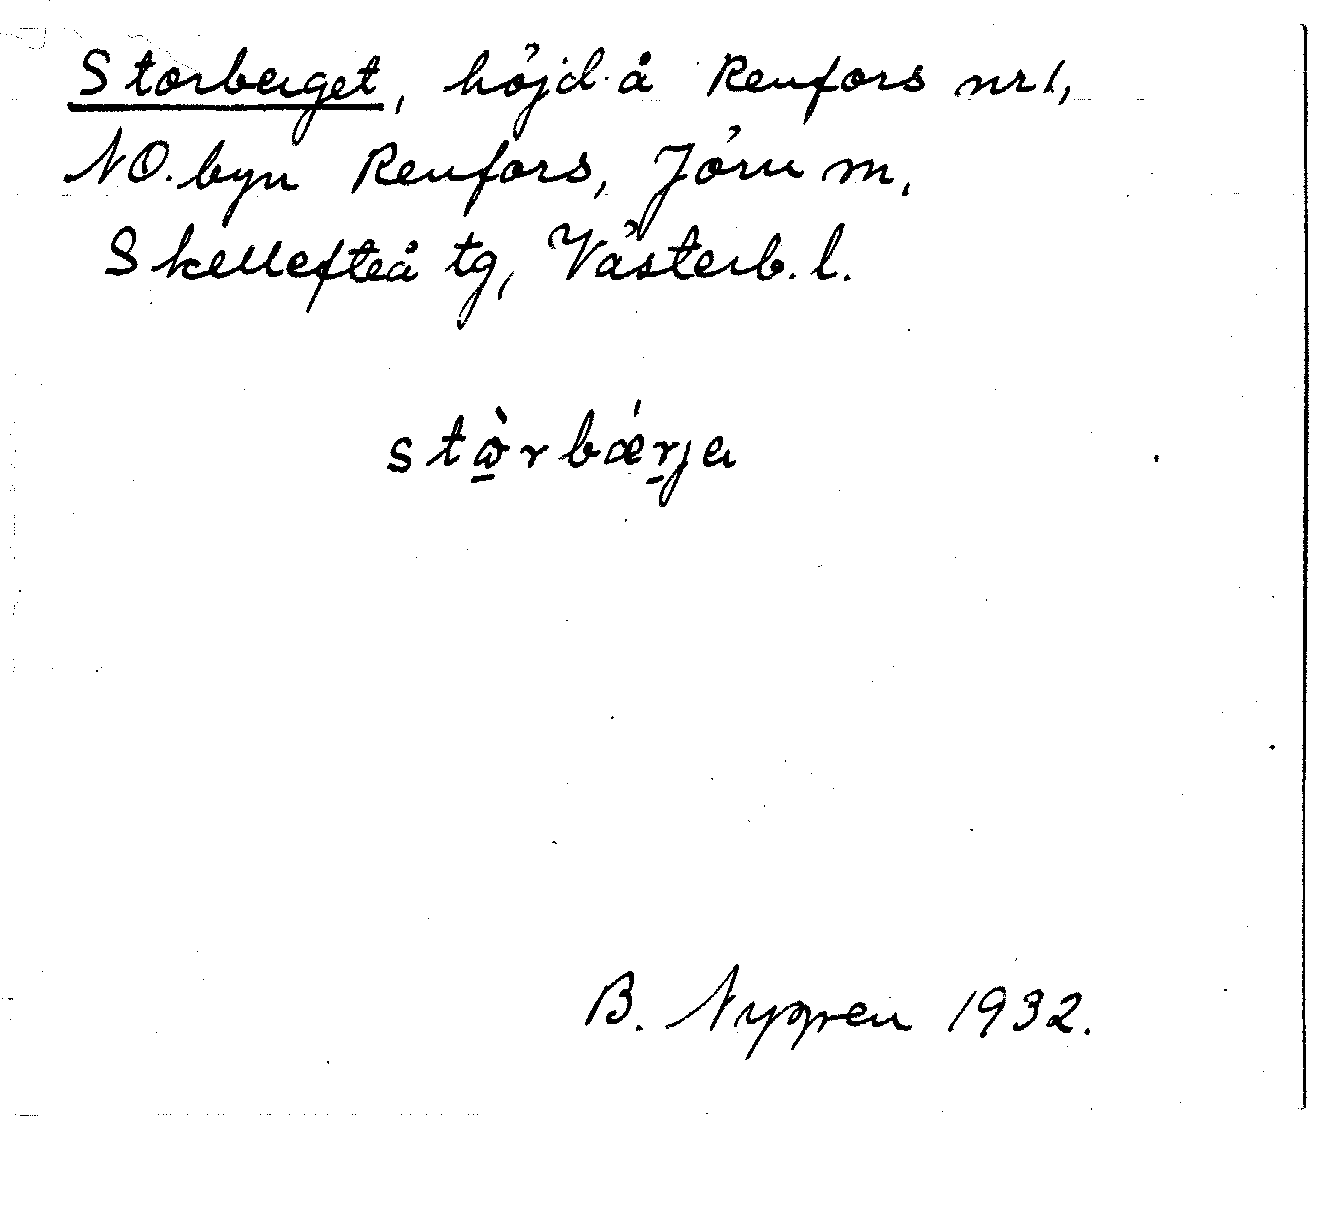 Storberget, höjd å Renfors nr 1,
NO. byn Renfors, Jörn m,
Skellefteå tg, Västerb. l.
stòrbærja
B. Nygren 1932.